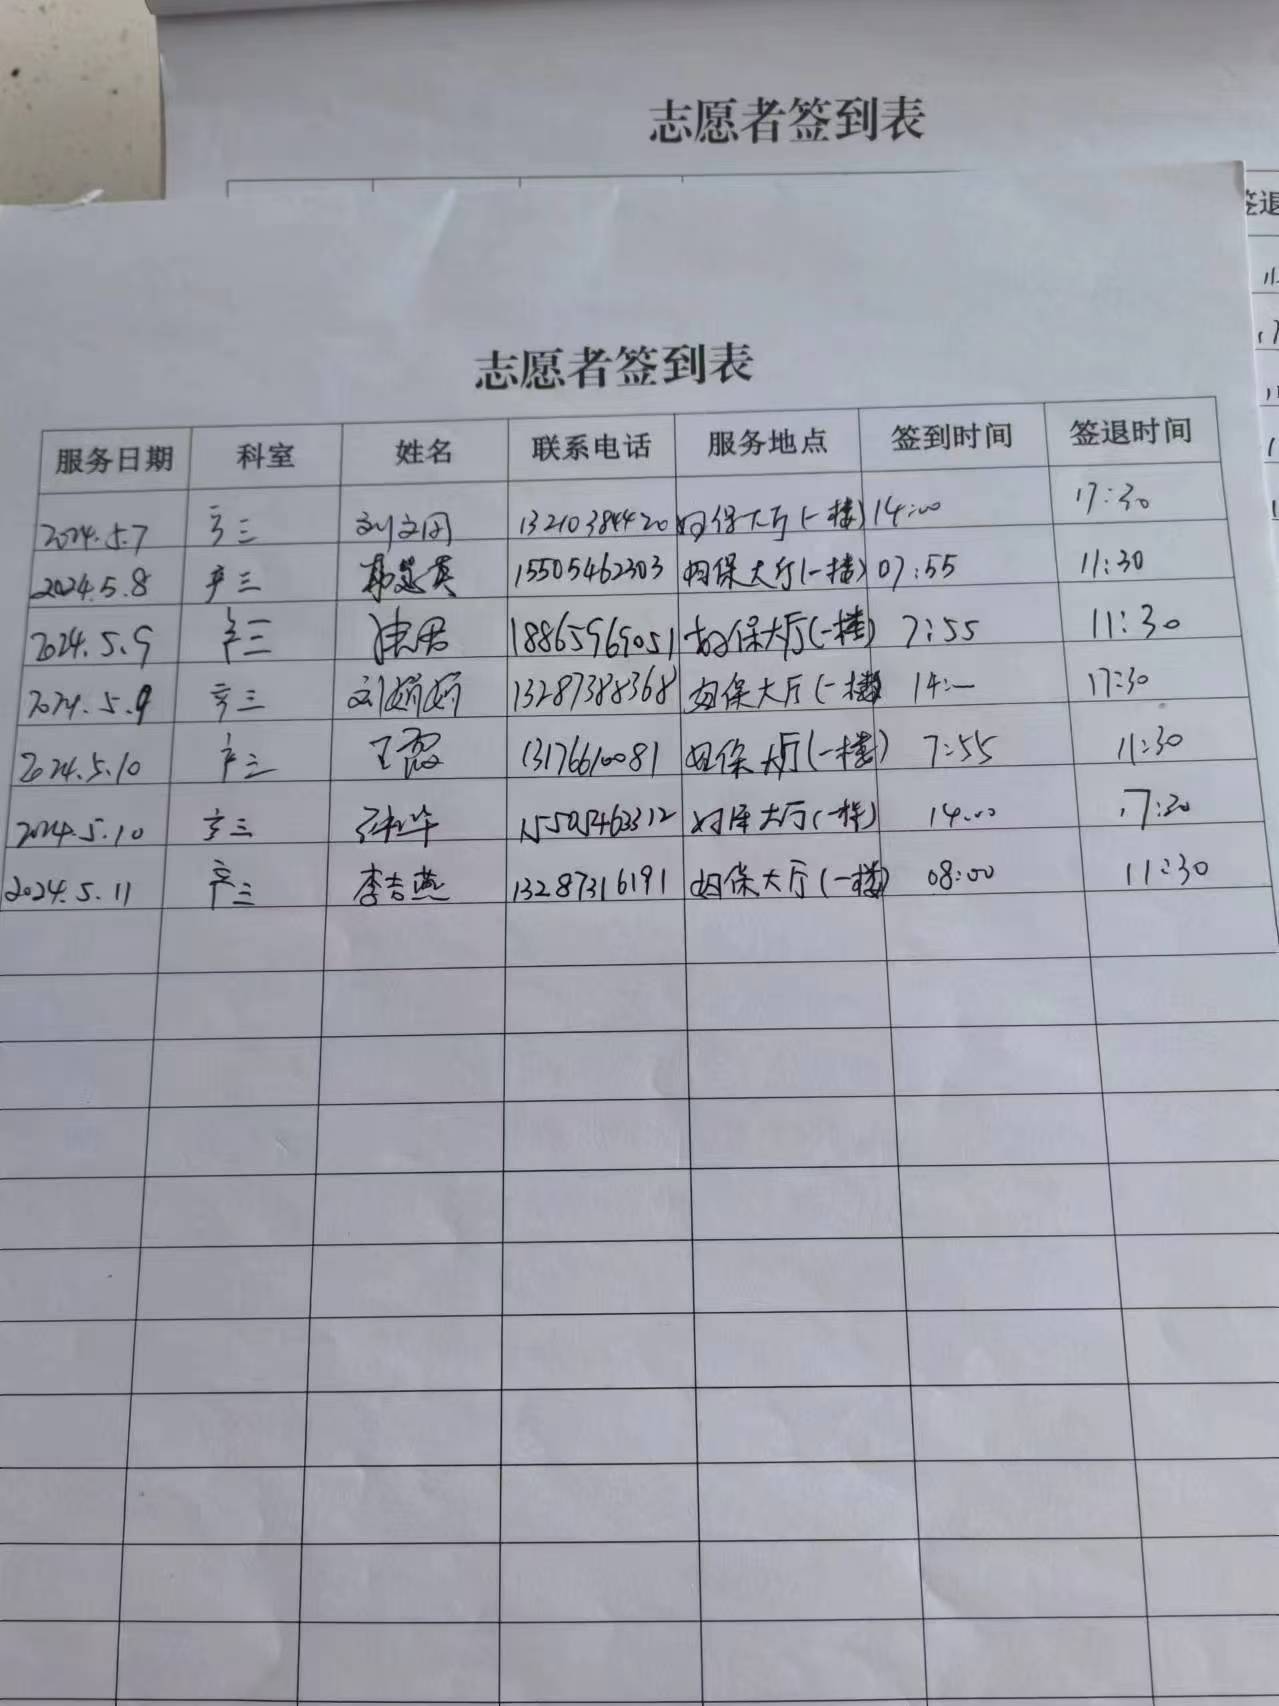 志愿者签到表
签退
11.
志愿者签到表
服务日期 科室 姓名 联系电话 服务地点 签到时间 签退时间
2024.5.7 产三 刘文 13210384420 妇保大厅(一楼) 14:00 17:30
2024.5.8 产三 英 15505462303 妇保大厅(一楼) 07:55 11:30
2024.5.9 产三 18865969051 妇保大厅(一楼) 7:55 11:30
2024.5.9 产三 刘娇娇 13287388368 妇保大厅(一楼) 14:— 17:30
2024.5.10 产三 王霞 13176610081 妇保大厅(一楼) 7:55 11:30
2024.5.10 产三 华 15505463312 妇保大厅(一楼) 14:00 17:30
2024.5.11 产三 李吉燕 13287316191 妇保大厅(一楼) 08:00 11:30